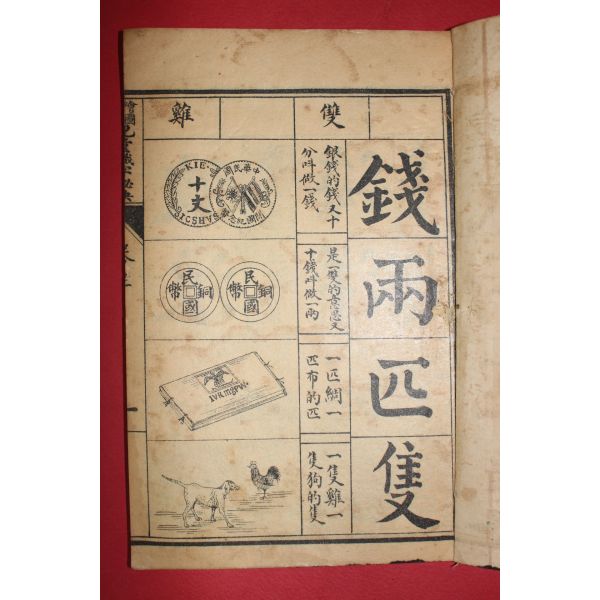 錢
兩
匹
隻
雙
銀錢的錢又十
分呌做一錢
是一雙的意思又
十錢呌做一兩
一匹綢一
匹布的匹
一隻雞一
隻狗的隻
雞
中華民國
開國紀念幣
十文
民國銅幣
民國銅幣
繪圖